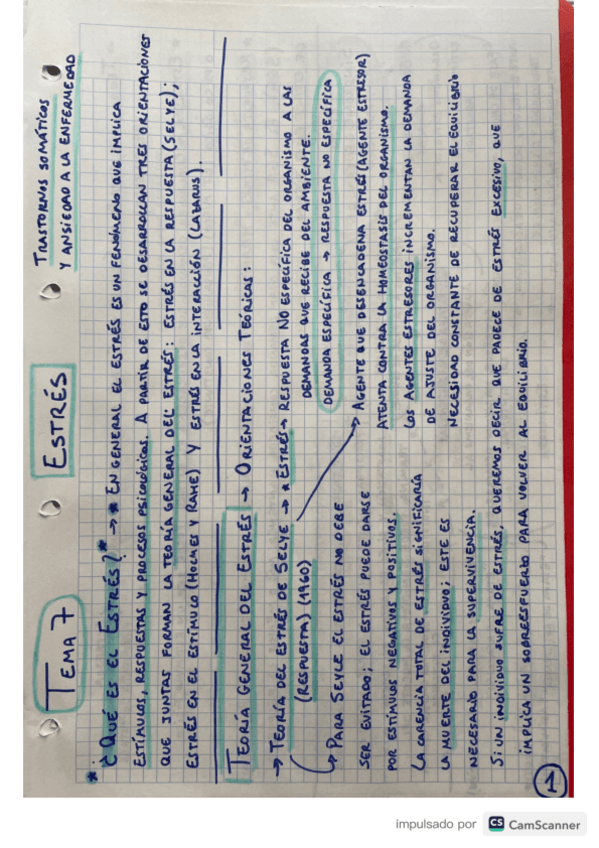 TEMA 7
ESTRÉS
TRASTORNOS SOMÁTICOS
Y ANSIEDAD A LA ENFERMEDAD
* ¿QUÉ ES EL ESTRÉS? * → * EN GENERAL EL ESTRÉS ES UN FENÓMENO QUE IMPLICA
ESTÍMULOS, RESPUESTAS Y PROCESOS PSICOLÓGICOS. A PARTIR DE ESTO SE DESARROLLAN TRES ORIENTACIONES
QUE JUNTAS FORMAN LA TEORÍA GENERAL DEL ESTRÉS: ESTRÉS EN LA RESPUESTA (SELYE);
ESTRÉS EN EL ESTÍMULO (HOLMES Y RAHE) Y ESTRÉS EN LA INTERACCIÓN (LAZARUS).
TEORÍA GENERAL DEL ESTRÉS → ORIENTACIONES TEÓRICAS:
→ TEORÍA DEL ESTRÉS DE SELYE → * ESTRÉS → RESPUESTA NO ESPECÍFICA DEL ORGANISMO A LAS
(RESPUESTA) (1960)
DEMANDAS QUE RECIBE DEL AMBIENTE.
DEMANDA ESPECÍFICA → RESPUESTA NO ESPECÍFICA
→ PARA SEYLE EL ESTRÉS NO DEBE
SER EVITADO; EL ESTRÉS PUEDE DARSE
POR ESTÍMULOS NEGATIVOS Y POSITIVOS.
LA CARENCIA TOTAL DE ESTRÉS SIGNIFICARÍA
LA MUERTE DEL INDIVIDUO; ESTE ES
NECESARIO PARA LA SUPERVIVENCIA.
→ AGENTE QUE DESENCADENA ESTRÉS (AGENTE ESTRESOR)
ATENTA CONTRA LA HOMEOSTASIS DEL ORGANISMO.
LOS AGENTES ESTRESORES INCREMENTAN LA DEMANDA
DE AJUSTE DEL ORGANISMO.
NECESIDAD CONSTANTE DE RECUPERAR EL EQUILIBRIO
SI UN INDIVIDUO SUFRE DE ESTRÉS, QUEREMOS DECIR QUE PADECE DE ESTRÉS EXCESIVO, QUE
IMPLICA UN SOBREESFUERZO PARA VOLVER AL EQUILIBRIO.
1
impulsado por CS CamScanner